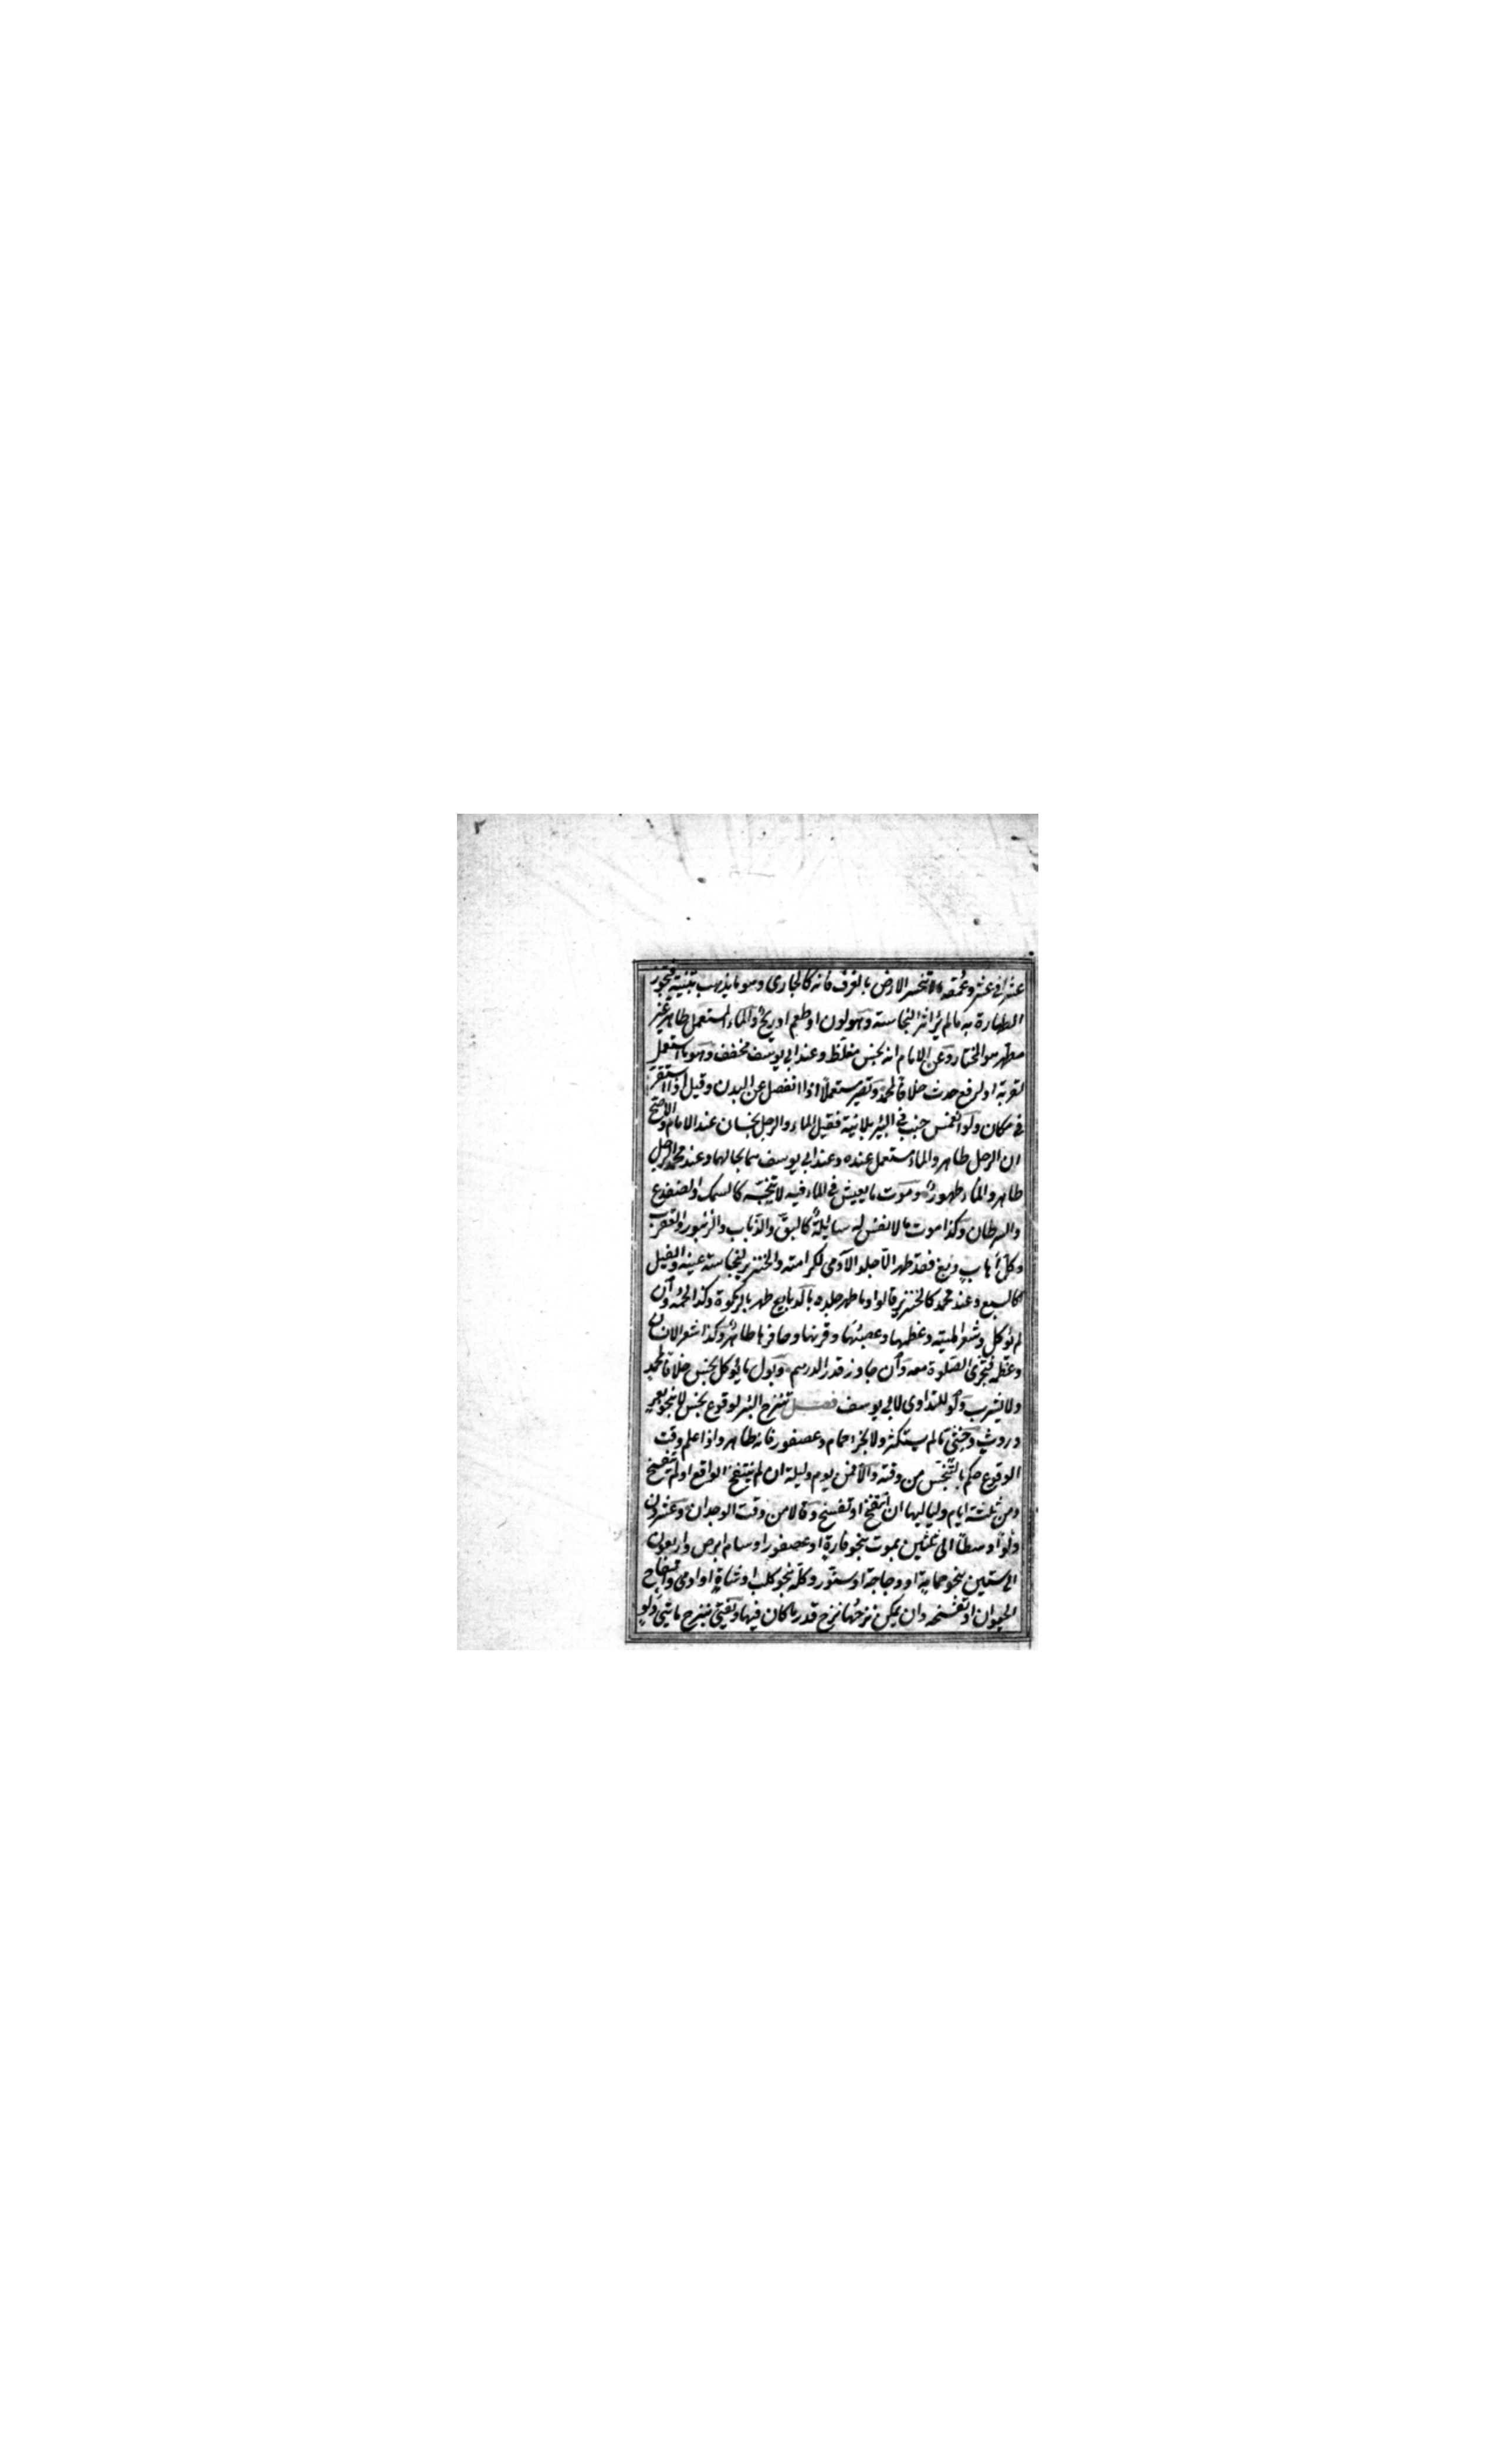 ٢
عشرا في عشر وعمقه ما لا تنحسر الارض بالغرف فانه كالجارى وهو ما يذهب بتبنة فتجوز
الطهارة به مالم ير اثر النجاسة وهو لون او طعم او ريح والماء المستعمل طاهر غير
مطهر هو المختار وعن الامام انه نجس مغلظ وعند ابي يوسف مخفف وهو ما استعمل
لقربة او لرفع حدث خلافا لمحمد وتصير مستعملا اذا انفصل عن البدن وقيل اذا استقر
في مكان ولو انغمس جنب في البير بلا نية فقيل الماء والرجل نجسان عند الامام والاصح
ان الرجل طاهر والماء مستعمل عنده وعند ابي يوسف هما بحالهما وعند محمد الرجل
طاهر والماء طهور وموت ما يعيش في الماء فيه لا ينجسه كالسمك والضفدع
والسرطان وكذا موت ما لا نفس له سائلة كالبق والذباب والزنبور والعقرب
وكل اهاب دبغ فقد طهر الا جلد الآدمى لكرامته والخنزير لنجاسة عينه والفيل
كالسبع وعند محمد كالخنزير قالوا وما طهر جلده بالدباغ طهر بالزكوة وكذا لحمه وان
لم يؤكل وشعر الميتة وعظمها وعصبها وقرنها وحافرها طاهر وكذا شعر الانسان
وعظمه فتجزى الصلوة معه وان جاوز قدر الدرهم وبول ما يؤكل نجس خلافا لمحمد
ولا يشرب ولو للتداوى لابي يوسف فصل تنزح البئر لوقوع نجس لا بنحو بعر
وروث وخثى مالم يستكثر ولا بخرء حمام وعصفور فانه طاهر واذا علم وقت
الوقوع حكم بالتنجس من وقته والا فمن يوم وليلة ان لم ينتفخ الواقع او لم يتفسخ
ومن ثلثة ايام ولياليها ان انتفخ او تفسخ وقالا من وقت الوجدان وعشرون
دلوا وسطا الى ثلثين بموت نحو فارة او عصفور او سام ابرص واربعون
الى ستين بنحو حمامة او دجاجة او سنور وكله بنحو كلب او شاة او ادمى وانتفاخ
الحيوان او تفسخه وان لم يمكن نزحها نزح قدر ما كان فيها ويفتى بنزح مائتى دلو